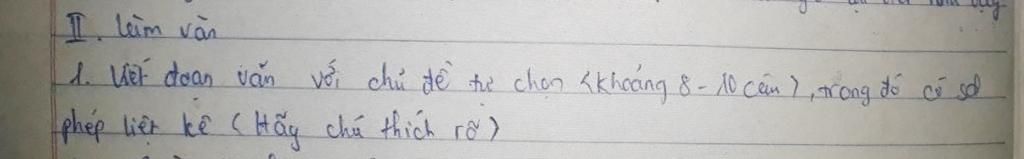 II. Làm văn
1. Viết đoạn văn với chủ đề tự chọn (khoảng 8 - 10 câu), trong đó có sd
phép liệt kê (Hãy chú thích rõ)